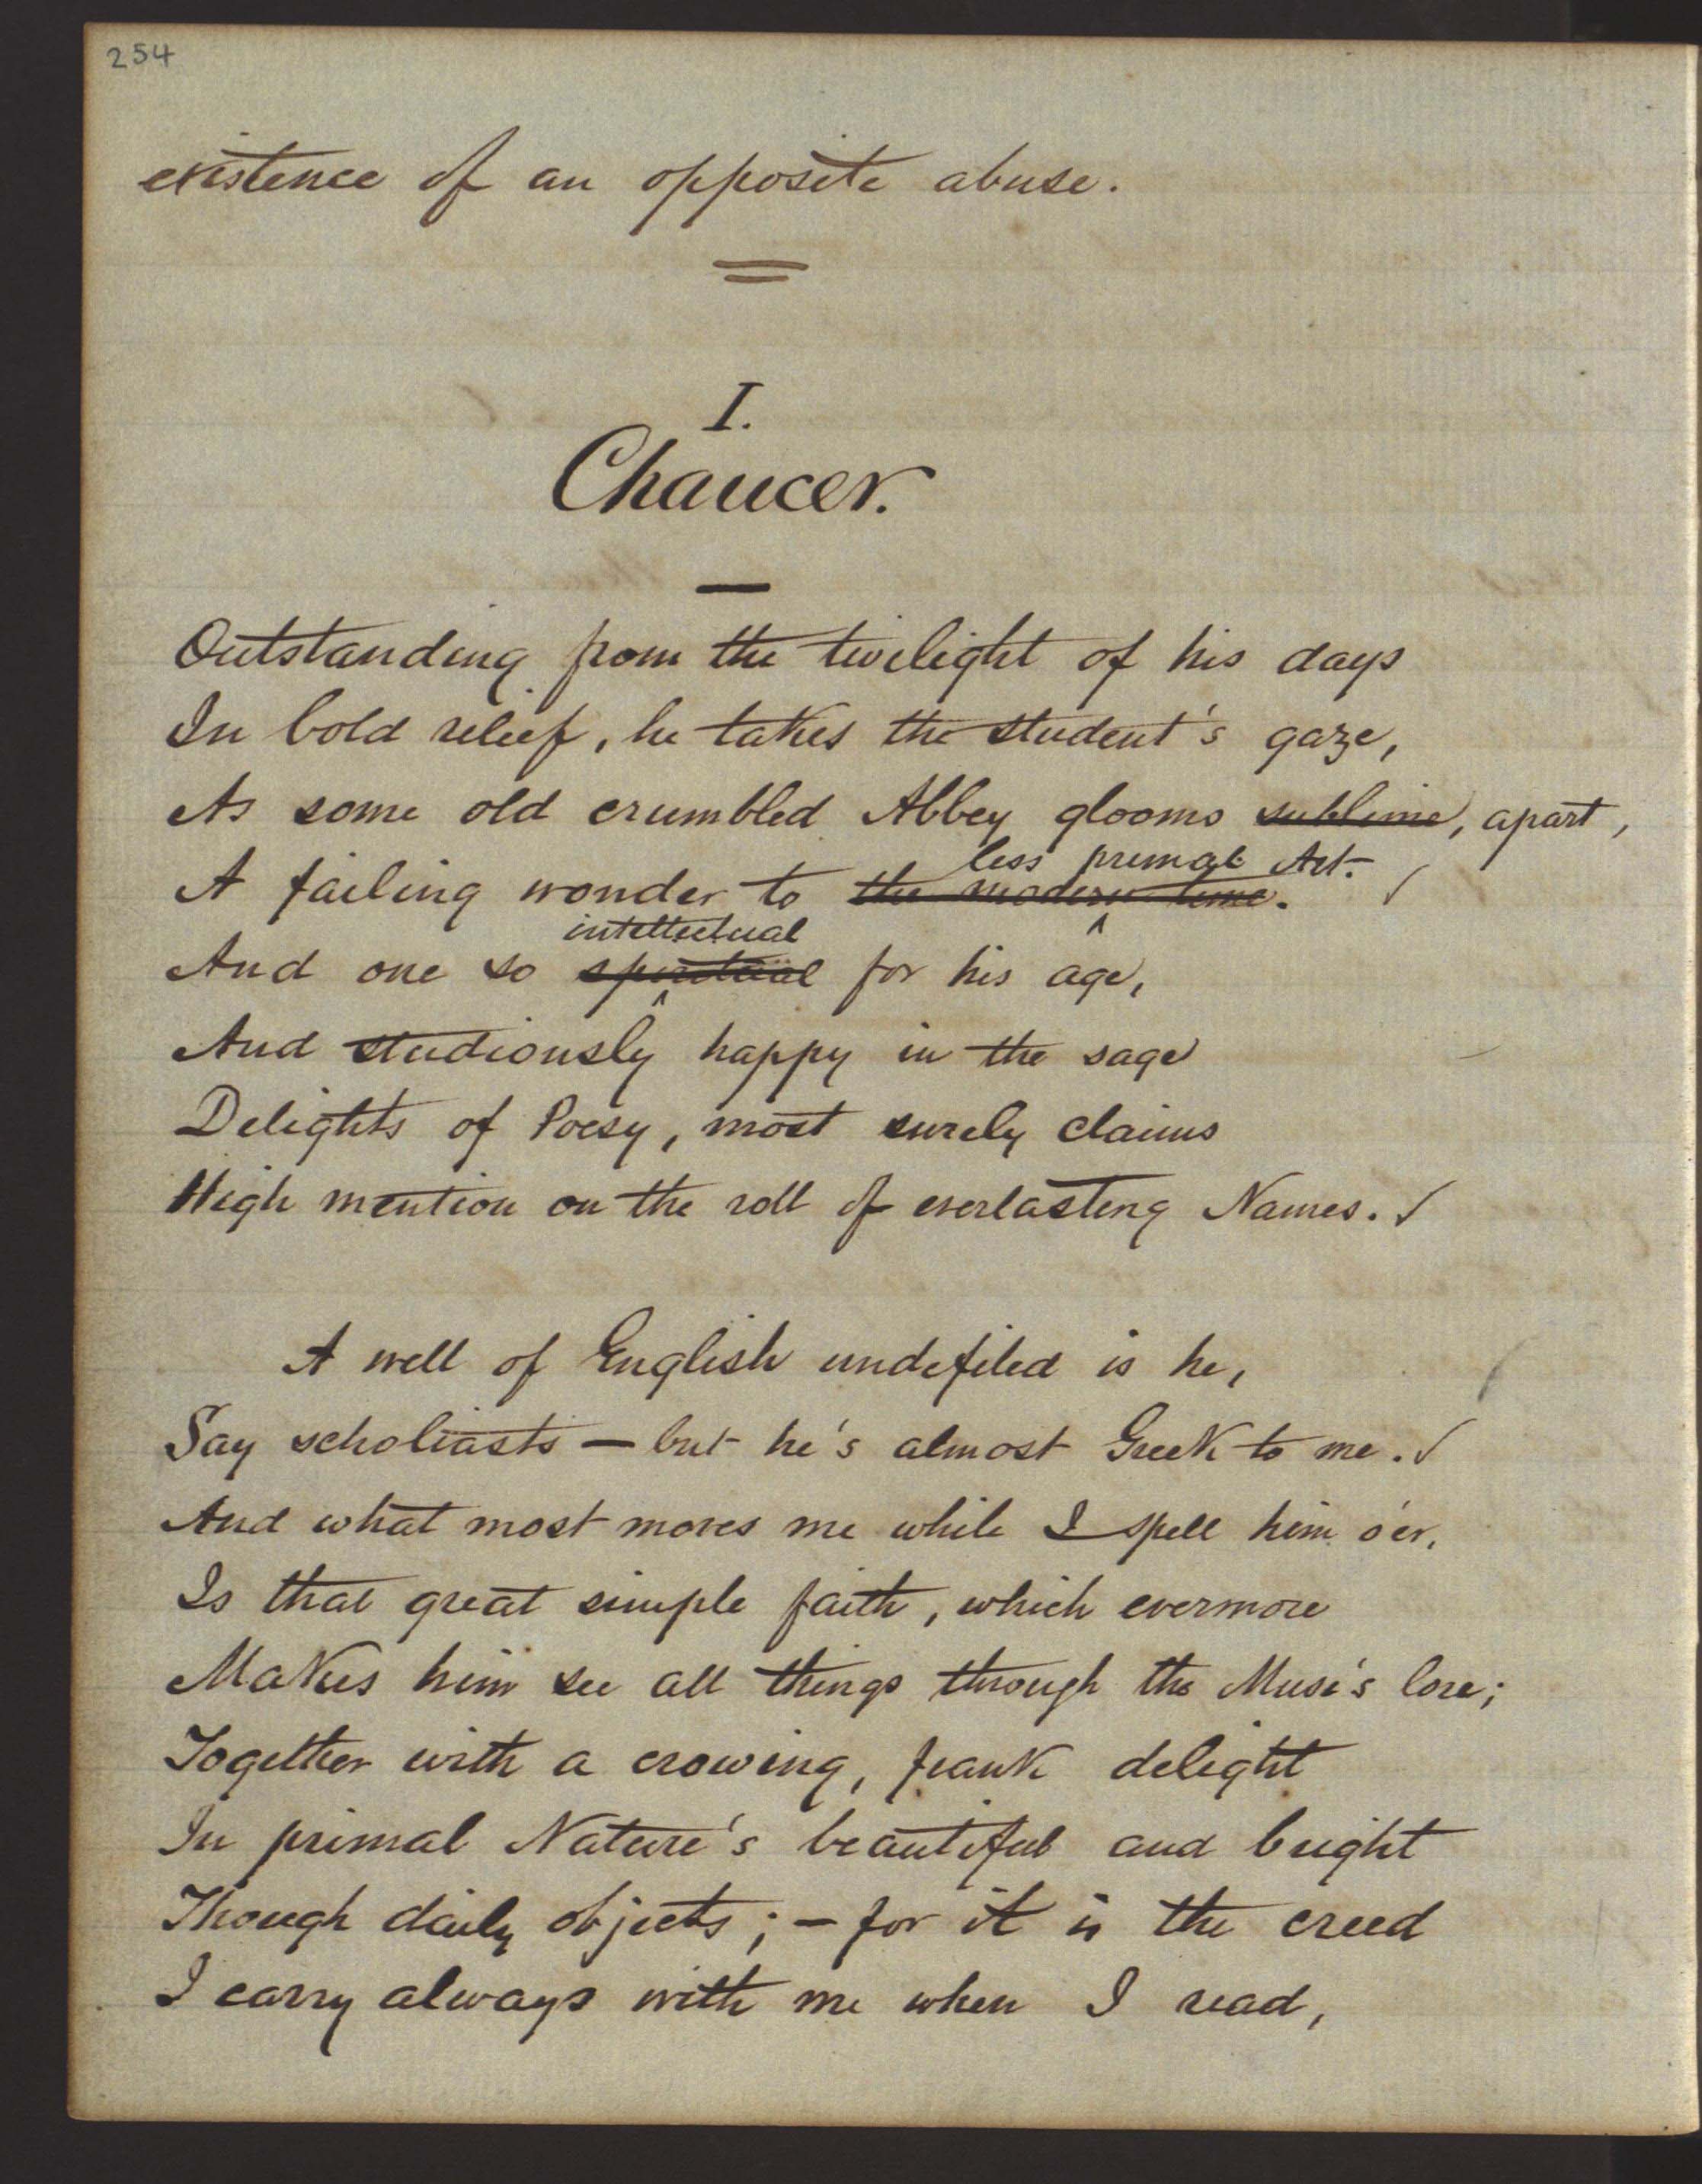 254
existence of an opposite abuse.
I.
Chaucer.
Outstanding from the twilight of his days
In bold relief, he takes the student's gaze,
As some old crumbled Abbey glooms sublime, apart,
less primal Art.
A failing wonder to the modern time.
intellectual
And one so spiritual for his age,
And studiously happy in the sage
Delights of Poesy, most surely claims
High mention on the roll of everlasting Names.
A well of English undefiled is he,
Say scholiasts — but he's almost Greek to me.
And what most moves me while I spell him o'er,
Is that great simple faith, which evermore
Makes him see all things through the Muse's lore;
Together with a crowing, frank delight
In primal Nature's beautiful and bright
Though daily objects; — for it is the creed
I carry always with me when I read,